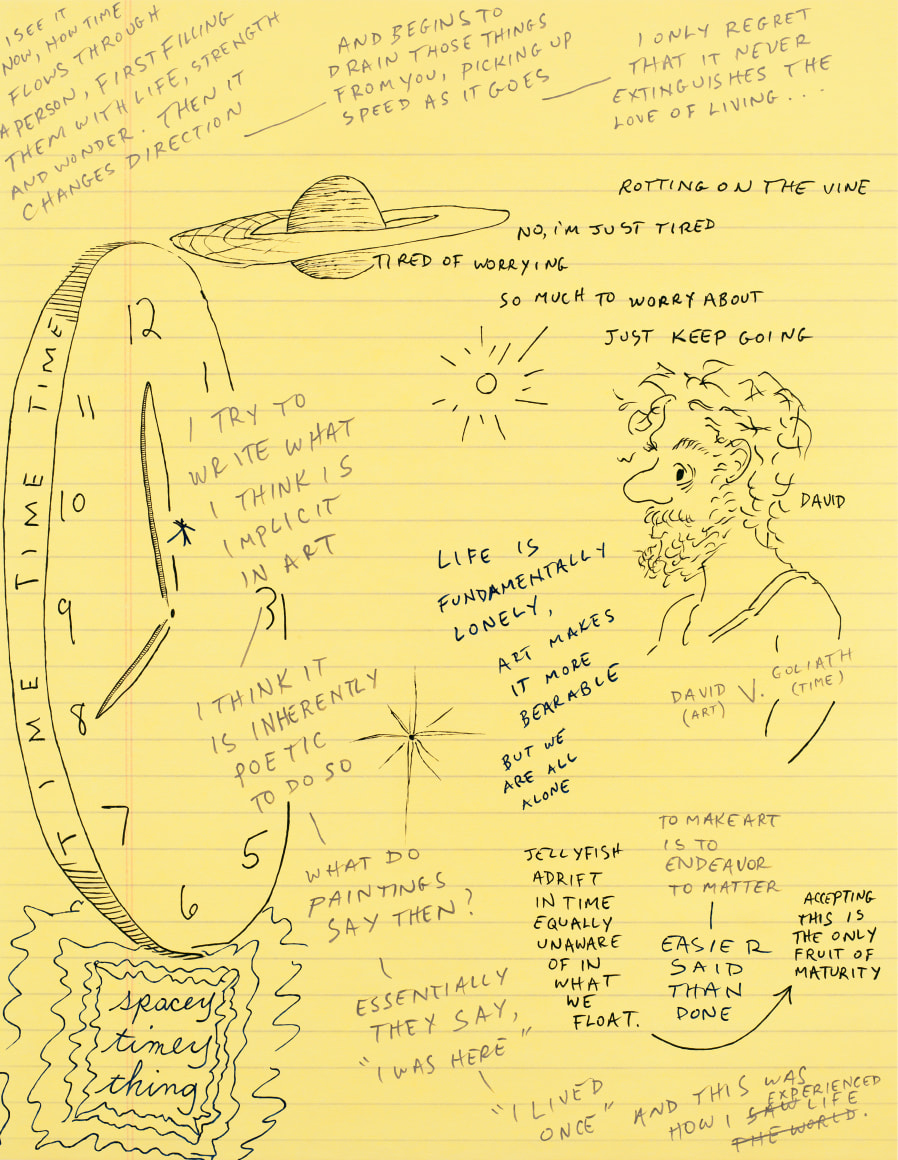 I SEE IT
NOW, HOW TIME
FLOWS THROUGH
A PERSON, FIRST FILLING
THEM WITH LIFE, STRENGTH
AND WONDER. THEN IT
CHANGES DIRECTION
AND BEGINS TO
DRAIN THOSE THINGS
FROM YOU, PICKING UP
SPEED AS IT GOES
I ONLY REGRET
THAT IT NEVER
EXTINGUISHES THE
LOVE OF LIVING...
ROTTING ON THE VINE
NO, I'M JUST TIRED
TIRED OF WORRYING
SO MUCH TO WORRY ABOUT
JUST KEEP GOING
TIME TIME TIME TIME
12
1
11
10
9
8
7
6
5
31
I TRY TO
WRITE WHAT
I THINK IS
IMPLICIT
IN ART
I THINK IT
IS INHERENTLY
POETIC
TO DO SO
WHAT DO
PAINTINGS
SAY THEN?
ESSENTIALLY
THEY SAY,
"I WAS HERE"
"I LIVED
ONCE"
AND THIS WAS
EXPERIENCED
HOW I SAW LIFE
THE WORLD.
DAVID
DAVID V. GOLIATH
(ART) (TIME)
LIFE IS
FUNDAMENTALLY
LONELY,
ART MAKES
IT MORE
BEARABLE
BUT WE
ARE ALL
ALONE
JELLYFISH
ADRIFT
IN TIME
EQUALLY
UNAWARE
OF IN
WHAT
WE
FLOAT.
TO MAKE ART
IS TO
ENDEAVOR
TO MATTER
EASIER
SAID
THAN
DONE
ACCEPTING
THIS IS
THE ONLY
FRUIT OF
MATURITY
spacey
timey
thing